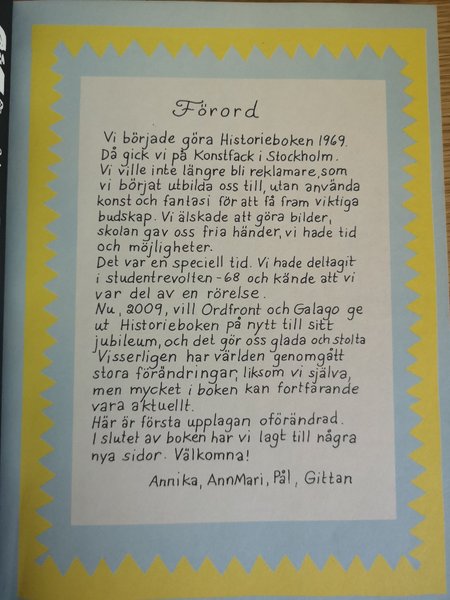 Förord
Vi började göra Historieboken 1969.
Då gick vi på Konstfack i Stockholm.
Vi ville inte längre bli reklamare, som
vi börjat utbilda oss till, utan använda
konst och fantasi för att få fram viktiga
budskap. Vi älskade att göra bilder,
skolan gav oss fria händer, vi hade tid
och möjligheter.
Det var en speciell tid. Vi hade deltagit
i studentrevolten -68 och kände att vi
var del av en rörelse.
Nu, 2009, vill Ordfront och Galago ge
ut Historieboken på nytt till sitt
jubileum, och det gör oss glada och stolta
Visserligen har världen genomgått
stora förändringar, liksom vi själva,
men mycket i boken kan fortfarande
vara aktuellt.
Här är första upplagan oförändrad.
I slutet av boken har vi lagt till några
nya sidor. Välkomna!
Annika, AnnMari, Pål, Gittan